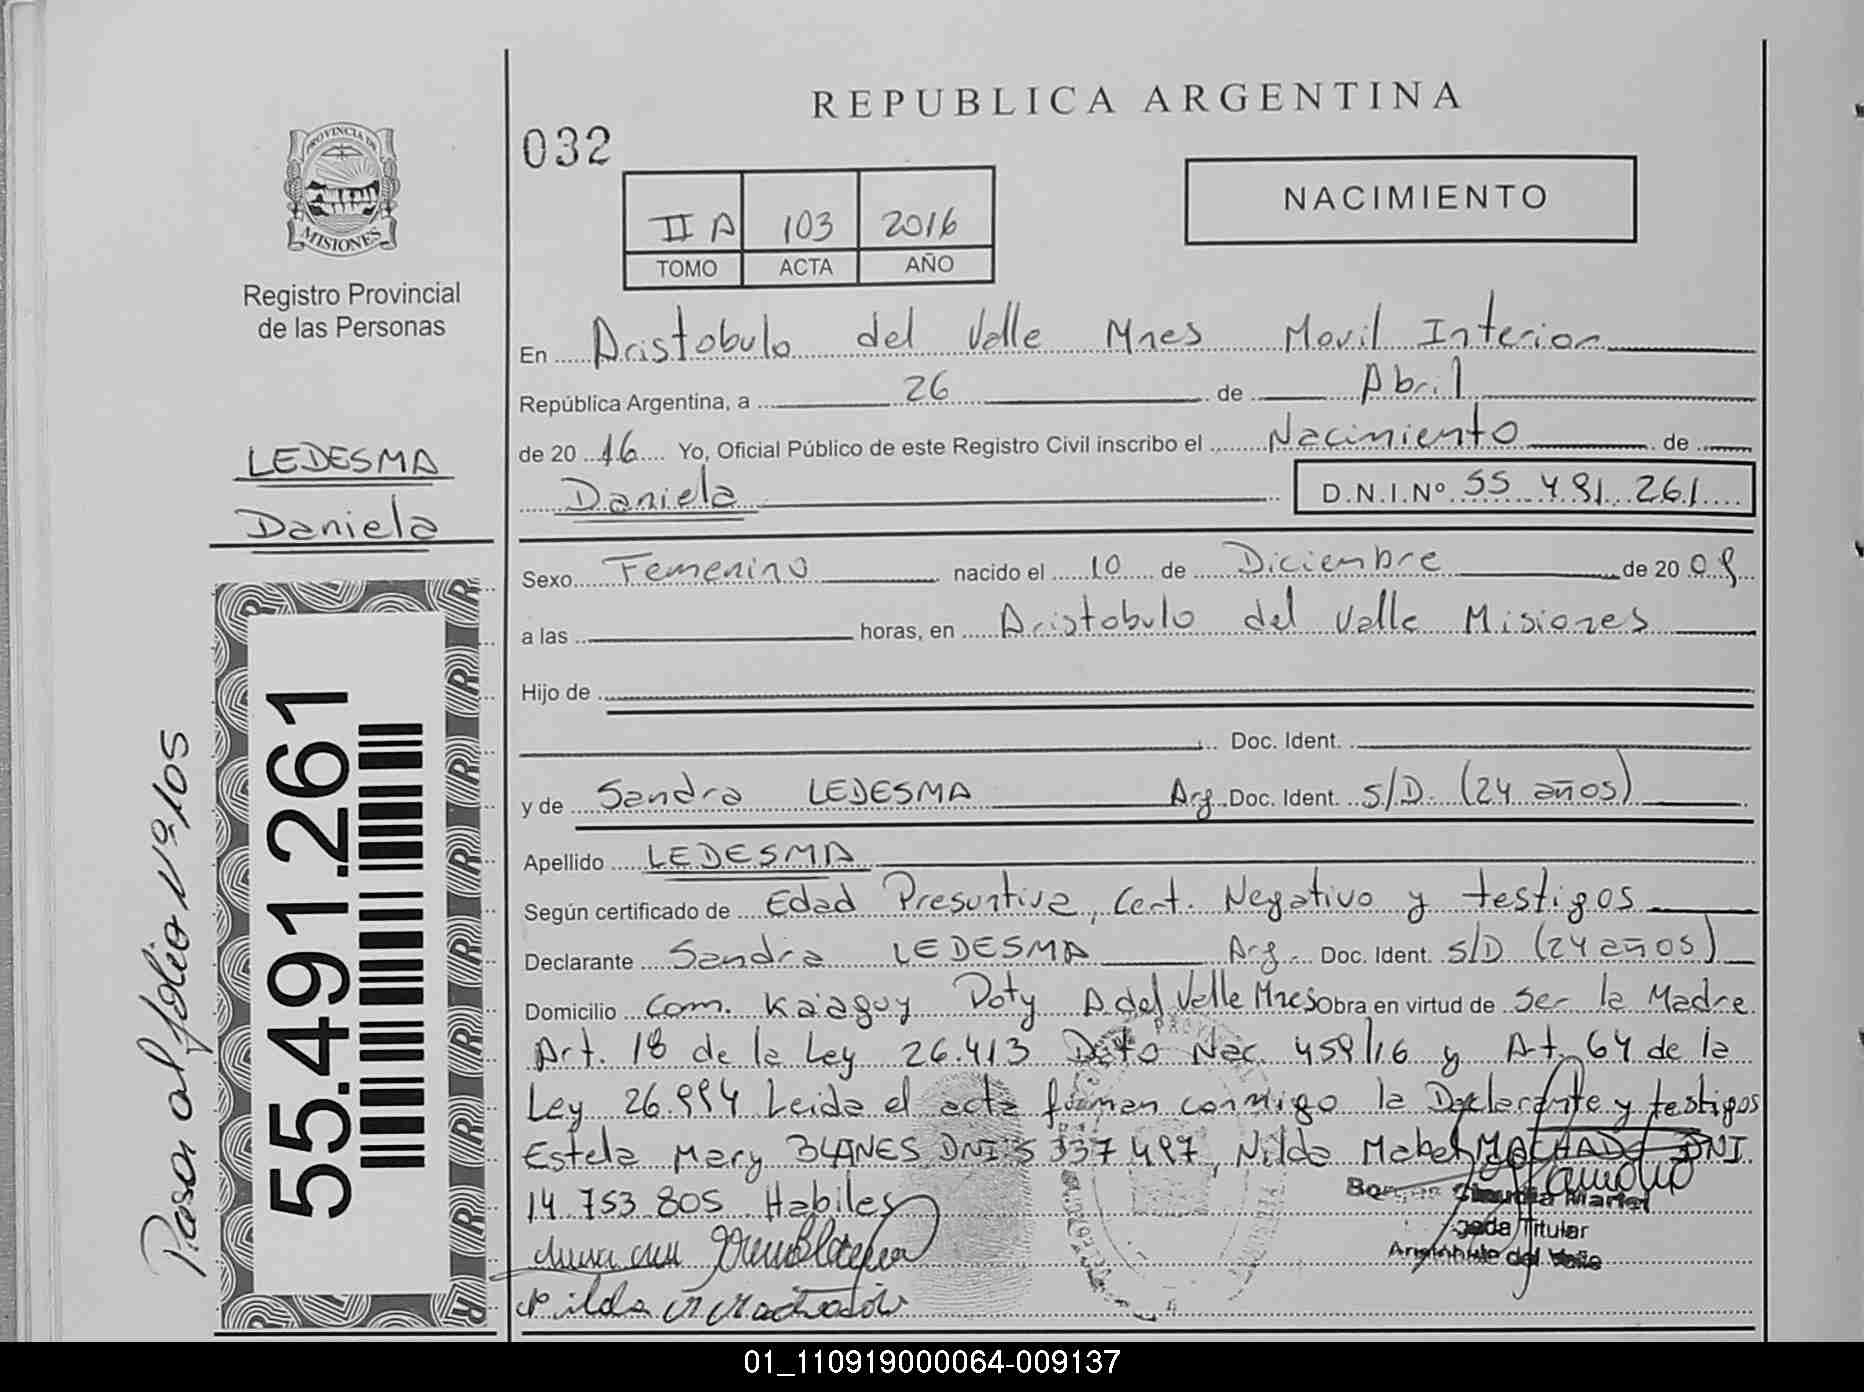 REPUBLICA ARGENTINA
032
PROVINCIA DE
MISIONES
Registro Provincial
de las Personas
II A 103 2016
TOMO ACTA AÑO
NACIMIENTO
En Aristobulo del Valle Mnes Movil Interior
República Argentina, a 26 de Abril
de 20 16 Yo, Oficial Público de este Registro Civil inscribo el Nacimiento de
Daniela D.N.I.Nº 55 491 261
LEDESMA
Daniela
Sexo Femenino nacido el 10 de Diciembre de 20 09
a las horas, en Aristobulo del Valle Misiones
Hijo de
Doc. Ident.
y de Sandra LEDESMA Arg. Doc. Ident. S/D. (24 años)
Apellido LEDESMA
Según certificado de Edad Presuntiva, Cert. Negativo y testigos
Declarante Sandra LEDESMA Arg. Doc. Ident. S/D (24 años)
Domicilio Com. Ka'aguy Poty A del Valle Mnes Obra en virtud de Ser la Madre
Art. 18 de la Ley 26.413 Dcto Nac. 459/16 y Art. 64 de la
Ley 26.994 Leida el acta firman conmigo la Declarante y testigos
Estela Mary BLANES DNI 5 337 497, Nilda Mabel MACHADO DNI
14.753.805 Habiles
Claudia Mariel
Titular
Aristóbulo del Valle
Nilda M Machado
55.491.261
Pasa al folio Nº 105
01_110919000064-009137